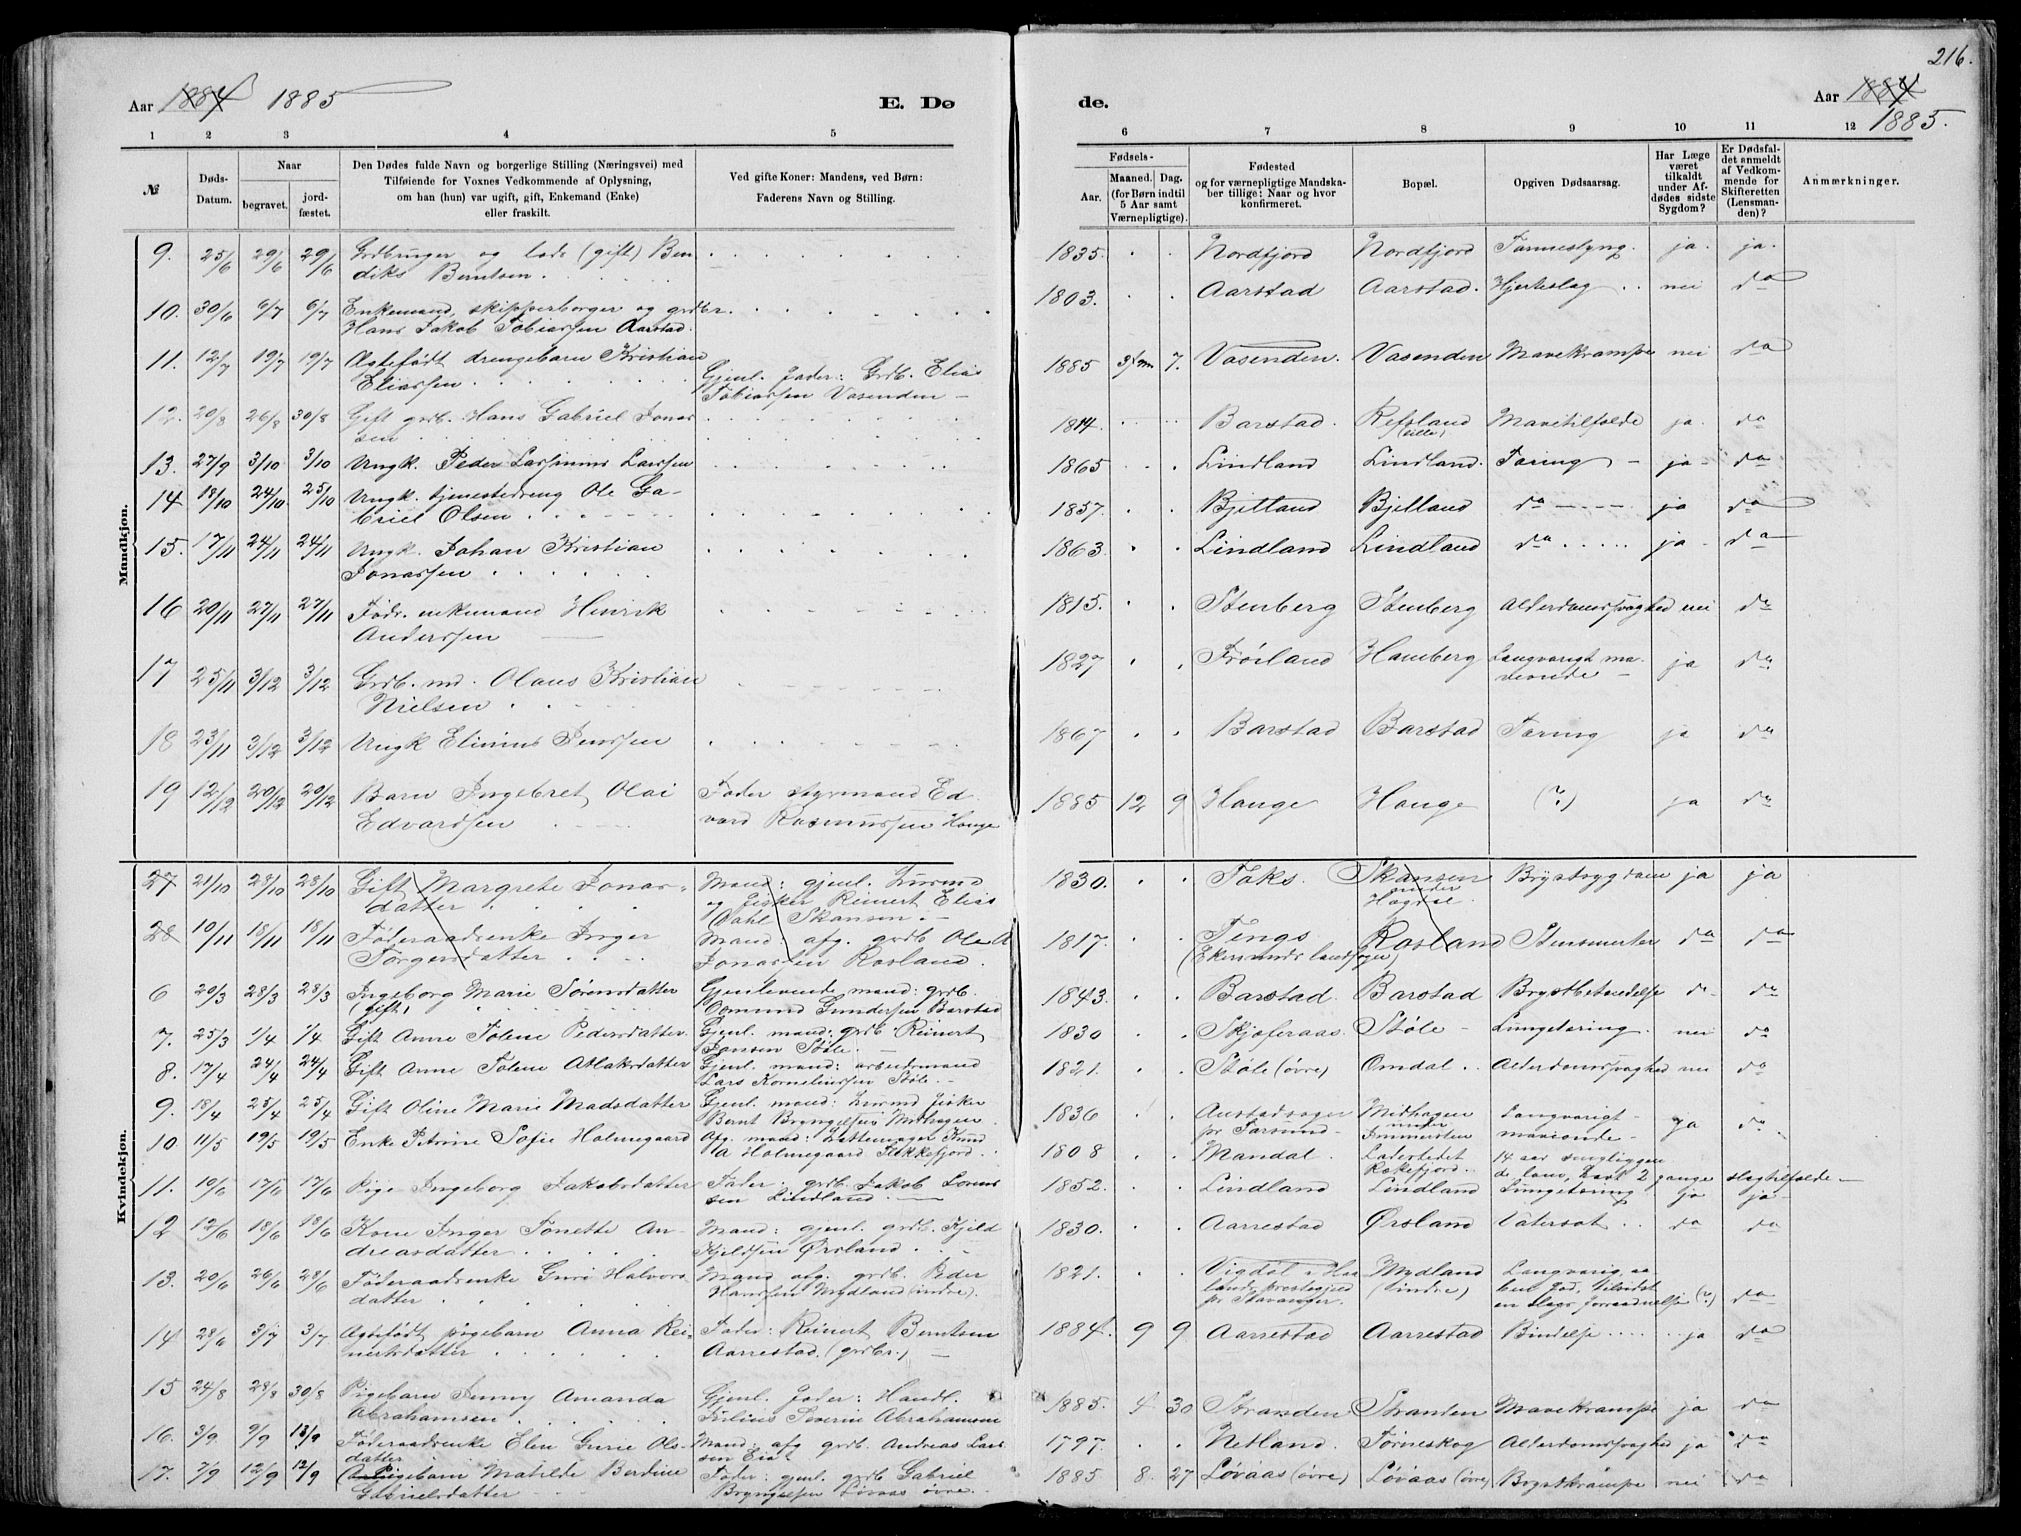 216.
Aar 1884 1885
E. Dø
de.
Aar 1884
1885.
1 2 3 4 5
6 7 8 9 10 11 12
№
Døds-
Datum.
Naar
begravet.
jord-
fæstet.
Den Dødes fulde Navn og borgerlige Stilling (Næringsvei) med
Tilføiende for Voxnes Vedkommende af Oplysning,
om han (hun) var ugift, gift, Enkemand (Enke)
eller fraskilt.
Ved gifte Koner: Mandens, ved Børn:
Faderens Navn og Stilling.
Fødsels-
Aar.
Maaned. Dag.
(for Børn indtil
5 Aar samt
Værnepligtige).
Fødested
og for værnepligtige Mandska-
ber tillige: Naar og hvor
konfirmeret.
Bopæl.
Opgiven Dødsaarsag.
Har Læge
været
tilkaldt
under Af-
dødes sidste
Sygdom?
Er Dødsfal-
det anmeldt
af Vedkom-
mende for
Skifteretten
(Lensman-
den)?
Anmærkninger.
Mandkjøn.
9. 25/6 29/6 29/6 Grdbruger og lods (gift) Ben
diks Berntsen.
1835. Nordfjord Nordfjord ja. ja.
10. 30/6 6/7 6/7 Enkemand, skipperborger og grdbr.
Hans Jakob Tobiassen Aarstad.
1803. Aarstad Aarstad. Hjerteslag nei do
11. 12/7 19/7 19/7 Ægtefødt drengebarn Kristian
Eliassen
Gjenl. fader: Grdb. Elias
Tobiassen Vasenden
1885 7. Vasenden. Vasenden Mavekrampe nei do
12. 20/8 26/8 30/8 Gift grdb. Hans Gabriel Jonas
sen
1814. Barstad. Refsland
(lille)
Mavetilfælde ja. do
13. 27/9 3/10 3/10 Ungk. Peder Lassinius Larssen
1865 Lindland Lindland. Tæring ja do
14 18/10 24/10 25/10 Ungk. tjenestedreng Ole Ga-
briel Olsen
1857. Bjelland Bjelland do ja do
15. 17/11 24/11 24/11 Ungk. Johan Kristian
Jonassen
1863. Lindland Lindland do ja do
16 20/11 27/11 27/11 Fødr. enkemand Henrik
Anderssen
1815. Stenberg Stenberg Alderdomssvaghed nei do
17 25/11 3/12 3/12 Grdb. md. Olaus Kristian
Nielsen
1827 Frøiland Hamberg Langvarigt ma-
veonde
ja do
18 23/11 3/12 3/12 Ungk Elinius Jenssen
1867 Barstad Barstad Tæring ja do
19 12/12 20/12 20/12 Barn Ingebret Olai
Edvardsen
Fader styrmand Ed
vard Rasmussen Hauge
1885 12 9 Hauge Hauge (?) ja do
Kvindekjøn.
27 21/10 28/10 28/10 Gift Margrete Jonas-
datter
Mand: gjenl. Lurmd
og fisker Reinert Elias
Dahl Skansen.
1830. Foks. Skansen
under
Brystsygdom ja ja
28 10/11 18/11 18/11 Føderaadsenke Inger
Torgersdatter
Mand: afg. grdb Ole A
Jonassen Rosland.
1817. Tengs
(Ekersunds landsogn)
Rosland Stensmerter do do
6 20/3 28/3 28/3 Ingeborg Marie Sørensdatter
(gift)
Gjenlevende mand: grdb.
Osmund Gundersen Barstad
1843. Barstad. Barstad Brystbetændelse do do
7. 25/3 1/4 1/4 Gift Anne Tolene Pedersdatter.
Gjenl. mand: grdb Reinert
Jansen Støle.
1830 Skjøferaas. Støle Lungetæring. nei do
8. 17/4 24/4 24/4 Gift Anne Tolene Atlaksdatter
Gjenl. mand: arbeidsmand
Lars Korneliussen Støle.
1821. Støle (øvre) Omdal Alderdomssvaghed nei do
9. 18/4 25/4 25/4 Gift Oline Marie Madsdatter
Gjenl. mand: Lurmd fisker
Bernt Bryngelsen Midhagen
1836 Austadsogn
pr Farsund
Midhagen
under
Langvarigt
maveonde
ja do
10 11/5 19/5 19/5 Enke Petrine Sofie Holmegaard
Afg. mand: Knud
A Holmegaard Flekkefjord.
1808 Mandal. Ladestedet
Rekefjord.
14 aar sengliggen
de lam, havt 2 gange slagtilfælde
11. 10/6 17/6 17/6 Pige Ingeborg Jakobsdatter
Fader: grdb. Jakob Sørens
sen Lindland.
1852. Lindland Lindland Lungetæring ja ja
12 12/6 18/6 18/6 Kone Inger Tonette An-
dreasdatter
Mand: gjenl. grdb. Kjeld
Kjeldsen Ørsland
1830. Aarrestad Ørsland Vatersot do do
13. 20/6 26/6 28/6 Føderaadsenke Guro Halvors
datter
Mand afg. grdb. Peder
Hanssen Mydland (indre).
1821. Vigdal i Haa
lands prestegjeld
pr Stavanger.
Mydland
(indre)
Langvarig aa
ben fod, tilsidst
en slags forraadnelse (?) do
14 28/6 3/7 3/7 Ægtefødt pigebarn Anna Rei-
nertsdatter
Fader: Reinert Berntsen
Aarrestad. (grdbr.)
1884. 9 9. Aarrestad Aarrestad Bindelse ja do
15 24/8 28/8 30/8 Pigebarn Jenny Amanda
Abrahamsen
Gjenl. fader: Handl.
Julius Severin Abrahamsen
1885. 4 30 Stranden Stranden Mavekrampe ja do
16. 3/9 9/9 13/9 Føderaadsenke Elen Gurie Ols-
datter
Mand: afg grdb. Andreas Lars
sen Eia
1797. Netland. Tørneskog Alderdomssvaghed ja do
17. 7/9 12/9 12/9 Pigebarn Matilde Berdine
Gabrielsdatter
Fader: gjenl. grdb Gabriel
Bryngelsen Løvaas øvre.
1885 8. 27 Løvaas (øvre) Løvaas (øvre) Brystkrampe nei do